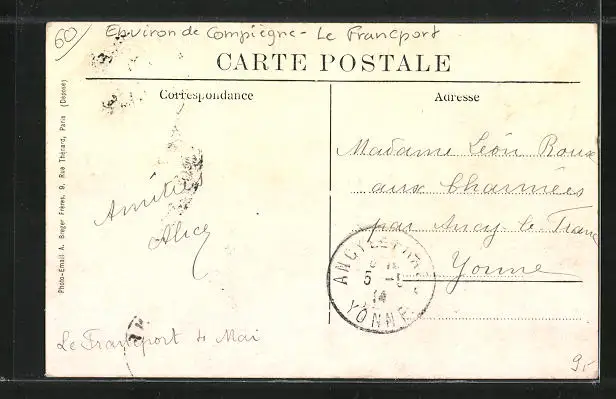 60
Environ de Compiègne - Le Francport
CARTE POSTALE
Correspondance
Adresse
Photo-Email A. Breger Frères, 9, Rue Thénard, Paris (Déposé)
Madame Léon Roux
aux Charmées
par Ancy le Franc
Yonne
Amitiés
Alice
ANCY-LE-FRANC
5 -5
14
YONNE
Le Francport 4 Mai
9,-